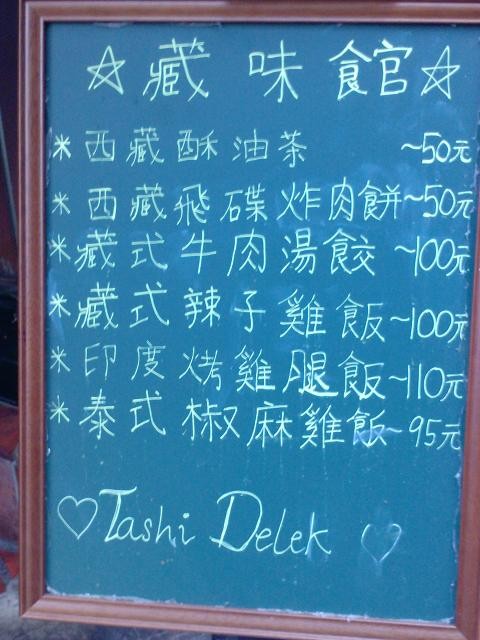 ☆藏味館☆
* 西藏酥油茶 ~50元
* 西藏飛碟炸肉餅~50元
* 藏式牛肉湯餃 ~100元
* 藏式辣子雞飯~100元
* 印度烤雞腿飯~110元
* 泰式椒麻雞飯~95元
♡Tashi Delek♡